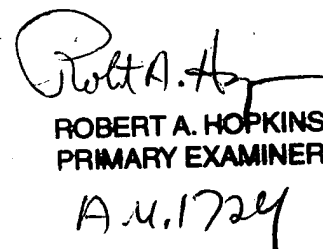 Robt A. Hop
ROBERT A. HOPKINS
PRIMARY EXAMINER
A.U. 1724